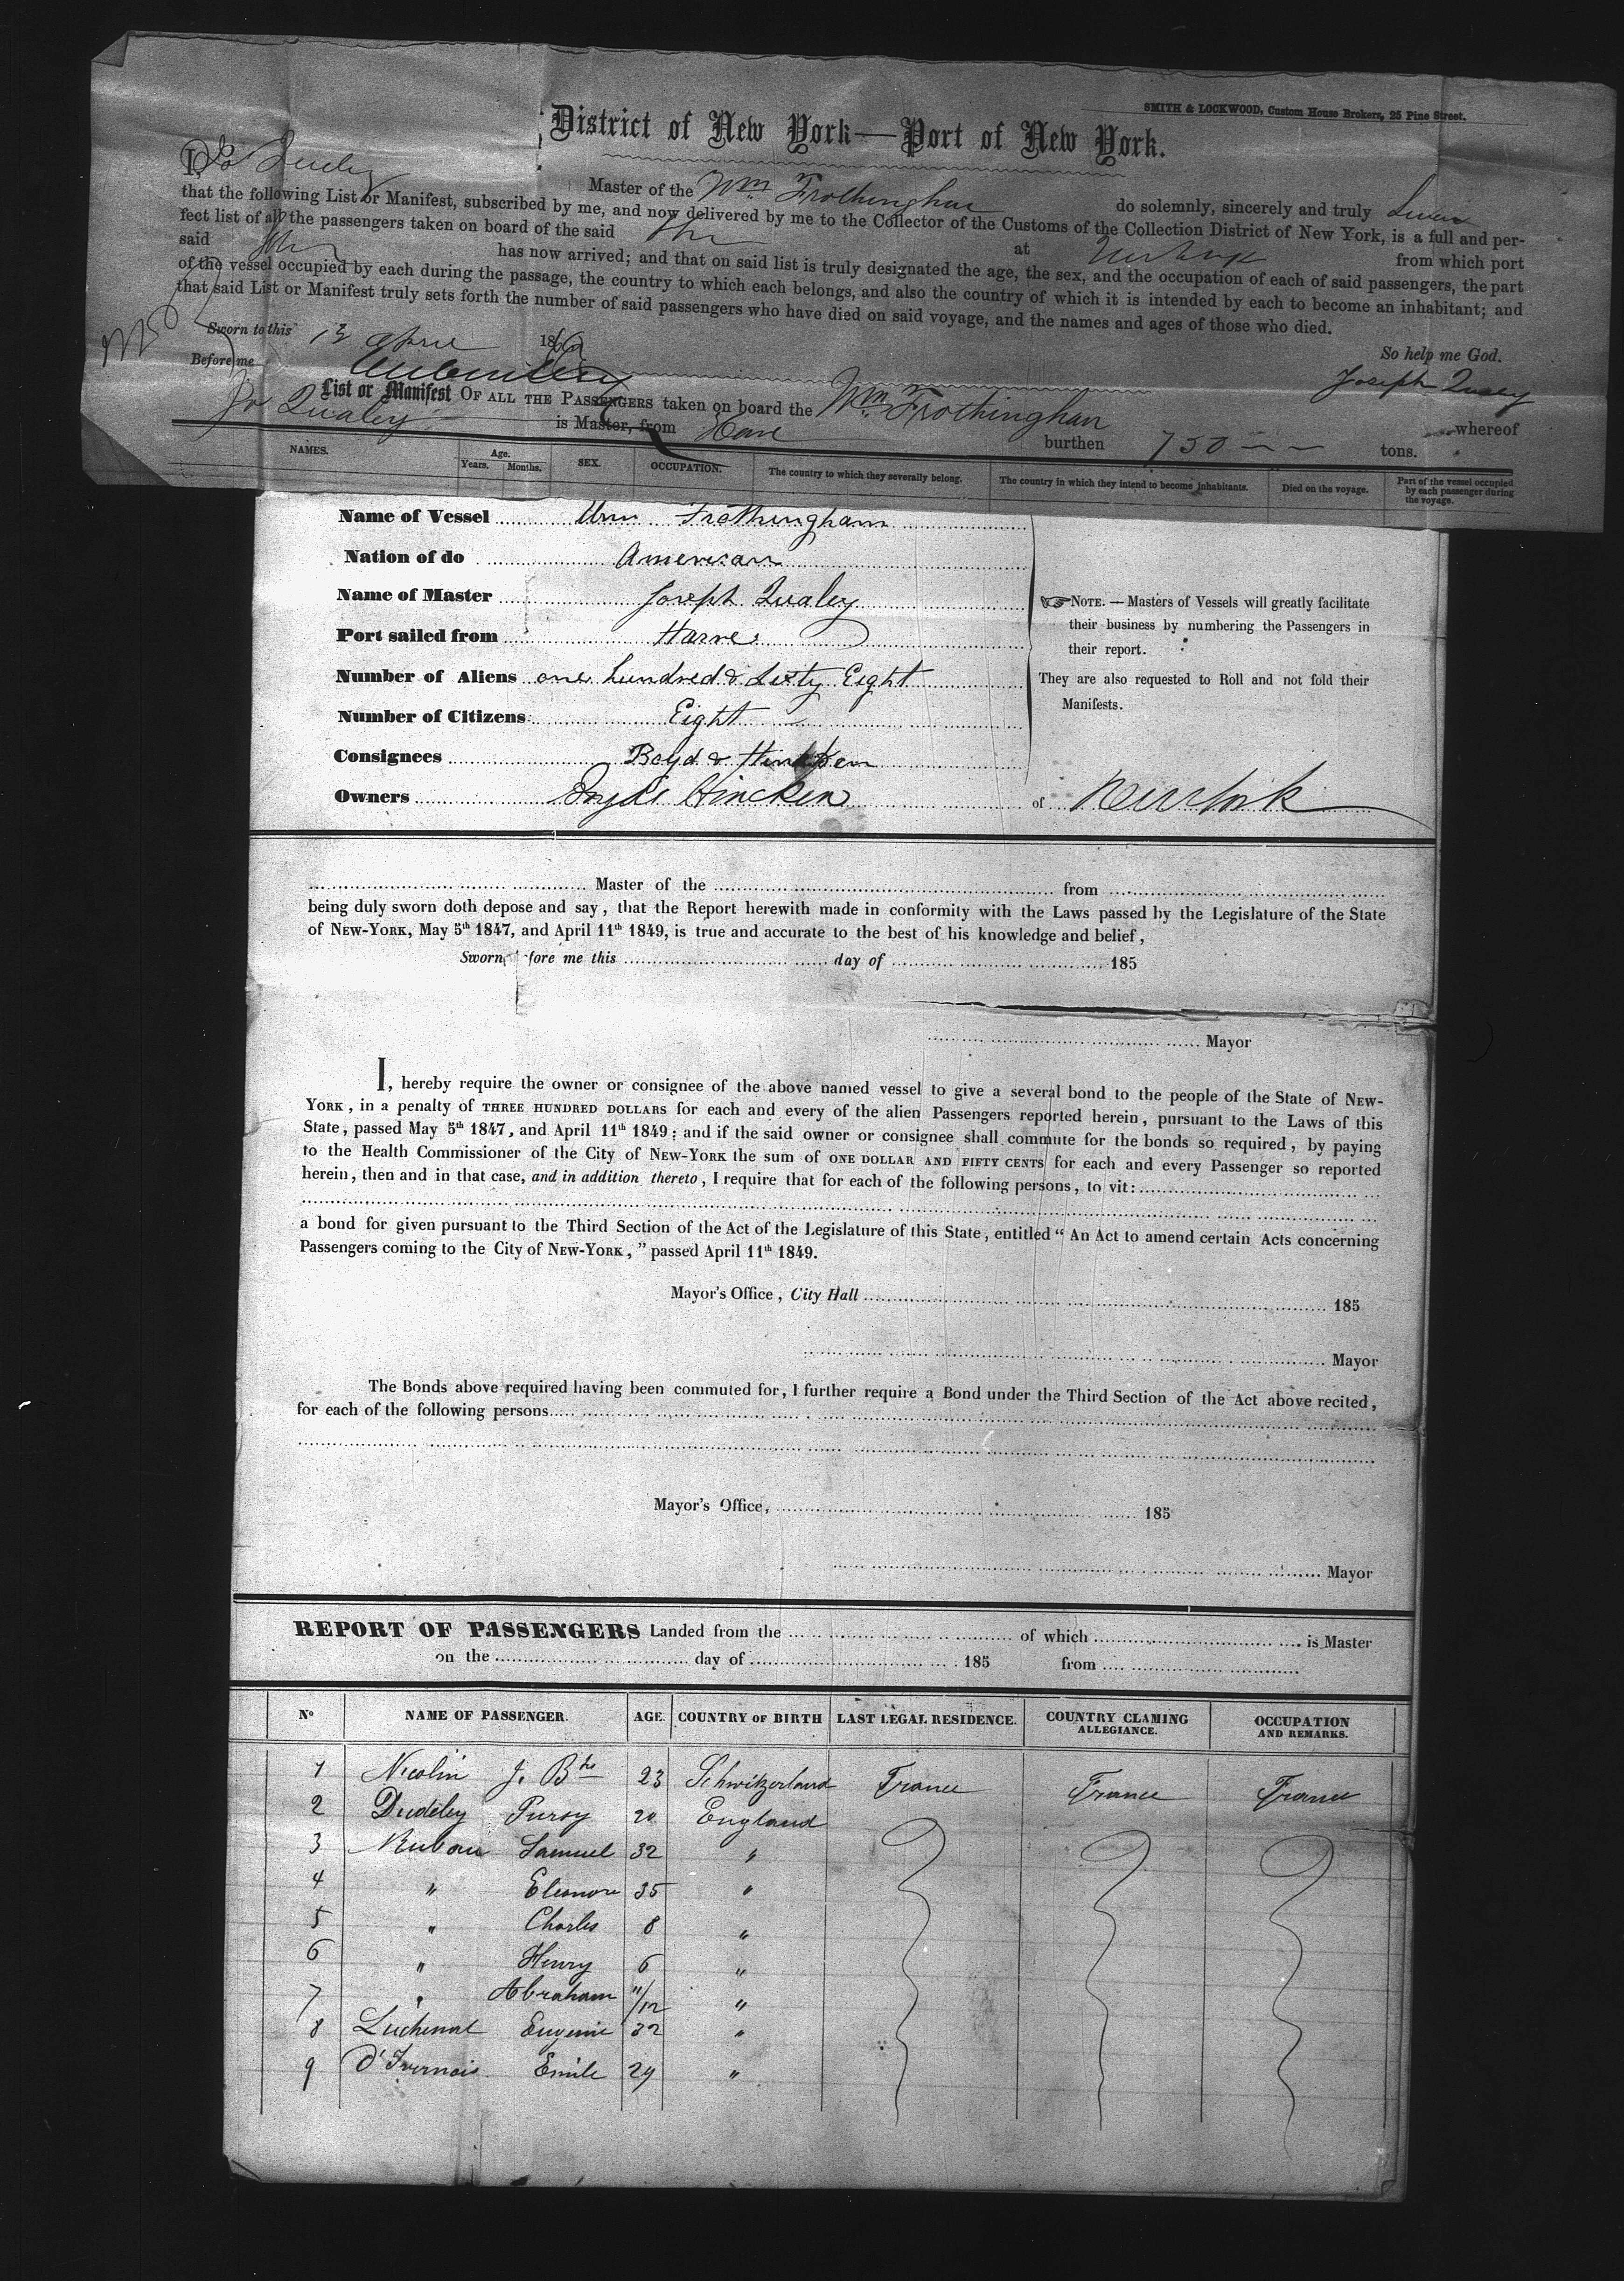 SMITH & LOCKWOOD, Custom House Brokers, 25 Pine Street.
District of New York—Port of New York.
I, Jo Qualey Master of the Wm Frothingham do solemnly, sincerely and truly Swear
that the following List or Manifest, subscribed by me, and now delivered by me to the Collector of the Customs of the Collection District of New York, is a full and per-
fect list of all the passengers taken on board of the said Ship at from which port
said Ship has now arrived; and that on said list is truly designated the age, the sex, and the occupation of each of said passengers, the part
of the vessel occupied by each during the passage, the country to which each belongs, and also the country of which it is intended by each to become an inhabitant; and
that said List or Manifest truly sets forth the number of said passengers who have died on said voyage, and the names and ages of those who died.
Sworn to this 186
So help me God.
Before me
Joseph Qualey
List or Manifest OF ALL THE PASSENGERS taken on board the Wm Frothingham whereof
Jo Qualey is Master, from Havre burthen 750 tons.
NAMES. Age. Years. Months. SEX. OCCUPATION. The country to which they severally belong. The country in which they intend to become inhabitants. Died on the voyage. Part of the vessel occupied by each passenger during the voyage.
Name of Vessel Wm Frothingham
Nation of do American
Name of Master Joseph Qualey
Port sailed from Havre
Number of Aliens one hundred & Sixty Eight
Number of Citizens Eight
Consignees Boyd & Hincken
Owners Boyd & Hincken of New York
NOTE. — Masters of Vessels will greatly facilitate
their business by numbering the Passengers in
their report.
They are also requested to Roll and not fold their
Manifests.
Master of the from
being duly sworn doth depose and say, that the Report herewith made in conformity with the Laws passed by the Legislature of the State
of NEW-YORK, May 5th 1847, and April 11th 1849, is true and accurate to the best of his knowledge and belief,
Sworn fore me this day of 185
Mayor
I, hereby require the owner or consignee of the above named vessel to give a several bond to the people of the State of NEW-
YORK, in a penalty of THREE HUNDRED DOLLARS for each and every of the alien Passengers reported herein, pursuant to the Laws of this
State, passed May 5th 1847, and April 11th 1849; and if the said owner or consignee shall commute for the bonds so required, by paying
to the Health Commissioner of the City of NEW-YORK the sum of ONE DOLLAR AND FIFTY CENTS for each and every Passenger so reported
herein, then and in that case, and in addition thereto, I require that for each of the following persons, to vit:
a bond for given pursuant to the Third Section of the Act of the Legislature of this State, entitled “ An Act to amend certain Acts concerning
Passengers coming to the City of NEW-YORK, ” passed April 11th 1849.
Mayor's Office, City Hall 185
Mayor
The Bonds above required having been commuted for, I further require a Bond under the Third Section of the Act above recited,
for each of the following persons
Mayor's Office, 185
Mayor
REPORT OF PASSENGERS Landed from the of which is Master
on the day of 185 from
No NAME OF PASSENGER. AGE. COUNTRY OF BIRTH LAST LEGAL RESIDENCE. COUNTRY CLAMING ALLEGIANCE. OCCUPATION AND REMARKS.
1 Nicolin J. Bte 23 Schwitzerland France France France
2 Dudeley Pursy 20 England
3 Samuel 32 "
4 " Eleonore 35 "
5 " Charles 8 "
6 " Henry 6 "
7 " Abraham 11/12 "
8 Luchenat Eugenie 32 "
9 d'Ivernois Emile 29 "